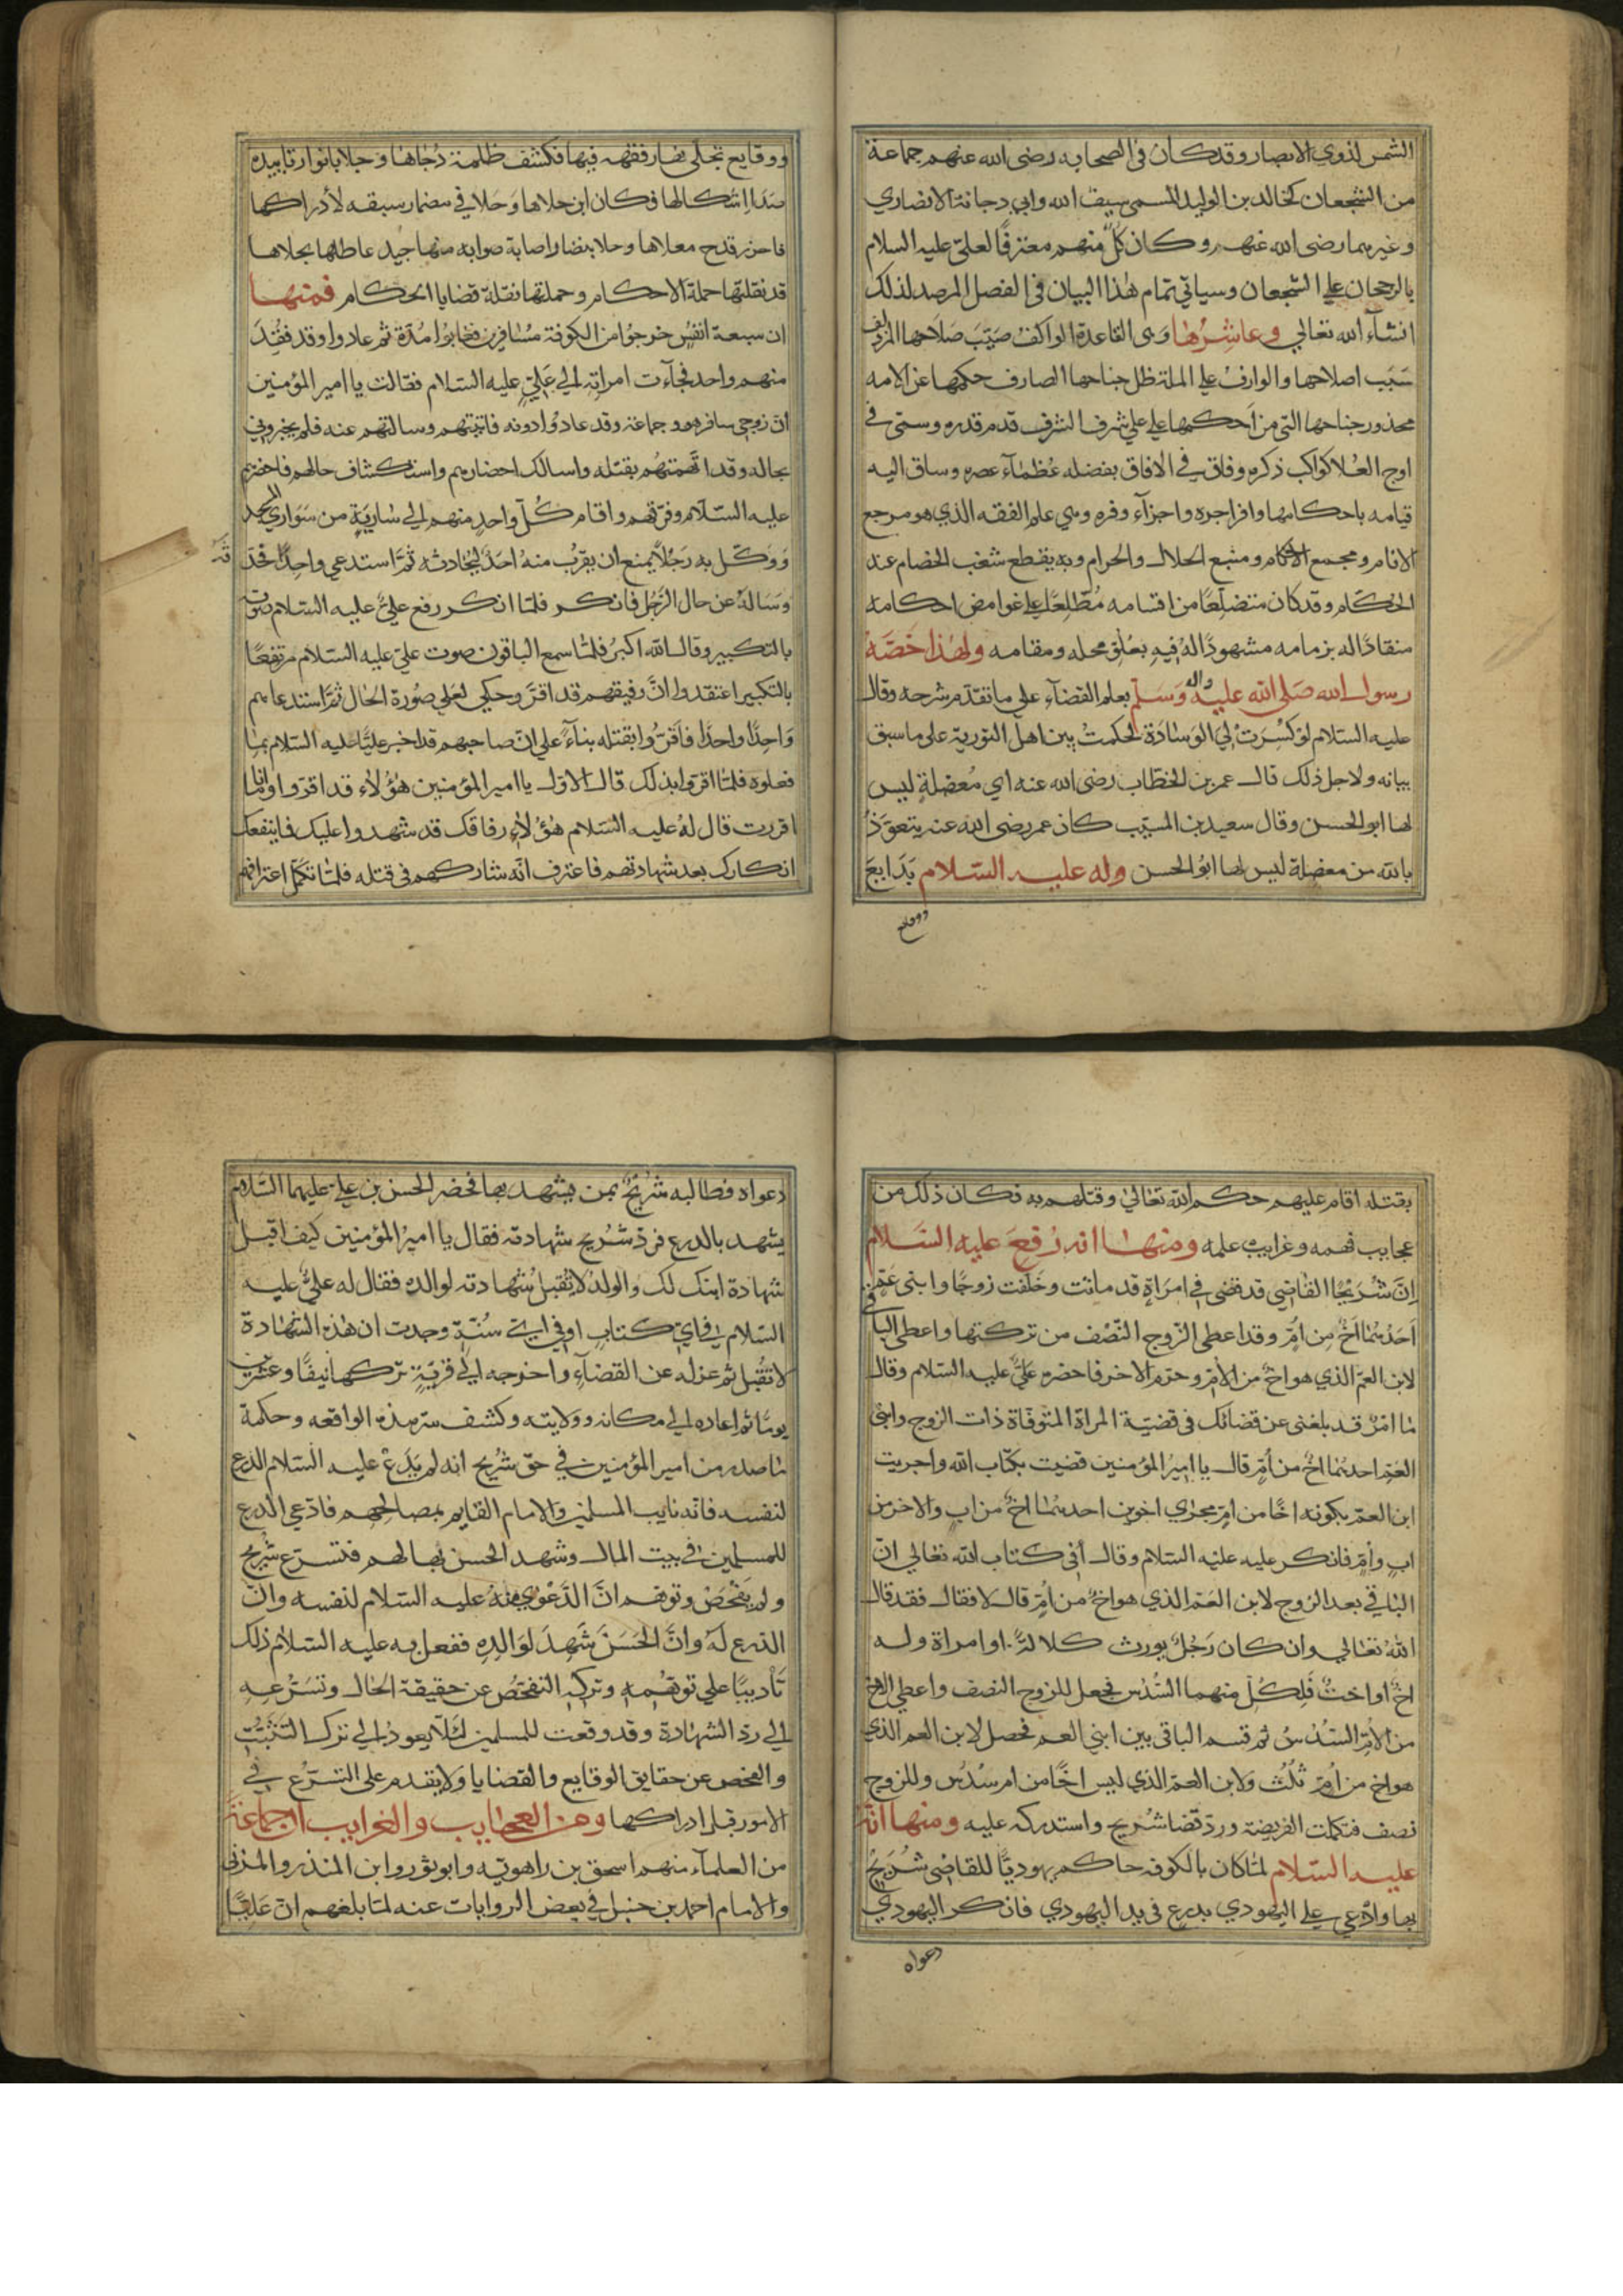 الشمس لذوي الابصار وقد كان في الصحابه رضى الله عنهم جماعة
من الشجعان كخالد بن الوليد المسمى سيف الله وابي دجانة الانصاري
وغيرهما رضى الله عنهم وكان كلٌ منهم معترفًا لعلي عليه السلام
بالرجحان علي الشجعان وسياتي تمام هذا البيان في الفصل المرصد لذلك
انشاء الله تعالي وعاشرها وهى القاعدة الواكف صَيّبَ صَلَاحها المزدلف
سَبَب اصلاحها والوارف علي الملة ظل جناحها الصارف حكمها عن الامه
محذور جناحها التي من اَحكمها علي علي شرف الشرف قدم قدره وسمى في
اوج العُلا كواكب ذكره وفاق في الافاق بفضله عُظماء عصره وساق اليه
قيامه باحكامها وافر اجره واجزاء وفره وهي علم الفقه الذي هو مرجع
الانام ومجمع الاحكام ومنبع الحلال والحرام وبه يقطع شغب الخصام عند
الحكام وقد كان متضلّعًا من اقسامه مُطّلعًا علي غوامض احكامه
منقادًا له بزمامه مشهودًا لهُ فيهِ بعُلوّ محله ومقامه ولهذا خَصّهُ
رسول الله صَلي الله عليه واله وَسَلم بعلم القضاء علي ما تقدّم شرحه وقال
عليه السّلام لو كُسِرَتْ لِيَ الوسَادَة لحكمتُ بين اهل التورية علي ما سبق
بيانه ولاجل ذلك قال عمر بن الخطاب رضى الله عنه اي مُعضلةٍ ليس
لها ابو الحسن وقال سعيد بن المسيّب كان عمر رضى الله عنه يتعوّذُ
بالله من معضلة ليس لها ابُو الحسن وله عليه السّلام بَدَايعَ
ووقايع
ووقايع تجلّى نهار فقهه فيها فكشف ظلمة دُجاها وجلا بانوار تاييده
صَدَا اِشكالها فكان ابن جلاها وَجلا في مضمار سبقه لادراكها
فاحرز قدح معلاها وحلا بنضار اصابة صوابه منها جيد عاطلها بحلاها
قد نقلتها حملة الاحكام وحملتها نقلة قضايا الحكام فمنها
ان سبعة انفُسٍ خرجُوا من الكوفة مُسَافرين فغابُوا مُدّة ثم عادوا وقد فقِدَ
منهم واحد فجآءت امراته الي عَليٍّ عليه السّلام فقالت يا امير المؤمنين
انّ زوجي سافر هو وجماعة وقد عادوا دونه فاتيتهم وسالتهم عنه فلم يخبروني
بحاله وقد اتّهمتهُم بقتله واسالك احضارهم واستكشاف حالهم فاحضرهم
عليه السّلام وفرّقهم واقام كُلّ واحدٍ منهم الي سَاريةٍ من سَوَاري المسجد
وَوَكّل به رَجُلاً يمنع ان يقرُب منهُ احدٌ ليُحادثه ثمّ استدعي واحِدًا فحدّ
ثه
وَسَالهُ عن حال الرّجُل فانكر فلمّا انكر رفع عليٌّ عليه السّلام صوته
بالتكبير وقال الله اكبرُ فلمّا سمع الباقون صوت علي عليه السلام مرتفعًا
بالتكبير اعتقدوا انّ رفيقهم قد اقرّ وحكي لعَليٍ صُورة الحَال ثمّ استدعاهم
وَاحِدًا واحدًا فاَقرّوا بقتله بنآءً علي انّ صاحبهم قد اخبر عليًّا عليه السّلام بما
فعلوه فلمّا اقرّوا بذلك قال الاول يا امير المؤمنين هؤُلاء قد اقرّوا وانا ما
اقررت قال لهُ عليه السّلام هؤُلاء رفاقك قد شهدوا عليك فما ينفعك
انكارك بعد شهادتهم فاعترف انّه شاركهم في قتله فلمّا تكمّل اعترافهم
بقتله اقام عليهم حكم الله تعالي وقتلهم به فكان ذلك من
عجايب فهمه وغرايب علمه ومنها انه رُفِعَ عليه السّلام
اِنّ شُرَيْحًا القاضِي قد قضى في امرَاةٍ قد ماتت وخَلفت زوجًا وابنى عَمٍّ
اَحَدُهُمَا اخٌ مِن اُمٍّ وقد اعطى الزّوج النّصْف من تركتها واعطي البا
قي
لابن العمّ الذي هو اخٌ من الاُمّ وحرّم الاخر فاحضره عَليٌّ عليه السّلام وقال
مَا امرٌ قد بلغنى عن قضائك في قضيّة المراة المتوفّاة ذات الزوج وابني
العَمّ احدهُما اخٌ من اُمّ قال يا امير المؤمنين قضيت بكتاب الله واجريت
ابن العمّ بكونه اخًا من امٍّ مجري اخوين احدهُما اخٌ من ابٍ والاخر من
ابٍ واُمّ فانكر عليه عليه السّلام وقال اَفي كتاب الله تعالي انّ
البَاقي بعد الزوج لابن العَمّ الذي هو اخٌ من اُمّ قال لا فقال فقد قال
اللهُ تعَالي وان كان رَجُلٌ يورث كلالةً او امراة وله
اخٌ او اختٌ فَلِكُلّ منهما السُّدُس فجعل للزوج النصف واعطي الاخ
من الاُمِّ السّدُسُ ثم قسم الباقي بين ابني العم فحصل لابن العم الذي
هو اخ من اُمّ ثُلُثٌ وَلابن العمّ الذي ليس اخًا من ام سُدُسٌ وللزوج
نصف فتكملت الفريضة وردّ قضا شُريح واستدركه عليه ومنها انّهُ
عليه السّلام لمّا كان بالكوفه حاكم يهوديًّا للقاضِي شُرَيْحٌ
بها وادّعي علي اليهودي بدرعٍ في يد اليهودي فانكر اليهودي
دعواه
دعواه فطالبه شُرَيْحٌ بمن يشهد بها فحضر الحسن بن علي عليهما السّلام
يشهد بالدرع فردّ شُرَيح شهادته فقال يا اميرَ المؤمنين كيف اقبل
شهادة ابنك لك والولدُ لا تُقبلُ شهادته لوالده فقال له عليٌّ عليه
السّلام في ايّ كتابٍ او في اي سُنّةٍ وجدت ان هذه الشّهادة
لا تقُبل ثم عزله عن القضآءِ واخرجه الي قريةٍ تركه نيفًا وعشرين
يومًا ثم اعاده الي مكانه وولايته وكشف سرّ هذه الواقعه وحكمة
مَا صدر من امير المؤمنين في حقّ شُريح انه لم يَدّعِ عليه السّلام الدرع
لنفسه فانّه نايب المسلمين والامام القايم بمصالحهم فادّعي الدرع
للمسلمين في بيت المال وشهد الحسن بها لهم فتسرّع شُريح
ولم يَفْحَصْ وتوهّم انّ الدّعْوي منهُ عليه السّلام لنفسه وانّ
الدّرع لهُ وانّ الحَسَنَ شَهِدَ لوَالدِهِ ففعل به عليه السّلام ذلك
تَأديبًا علي توهّمِهِ وتركِهِ التفحّص عن حقيقة الحَال وتسَرّعِهِ
الي ردّ الشهادة وقد وقعت للمسلمين لئلّا يعود الي ترك التثبّتِ
والفحص عن حقايق الوقايع والقضايا ولا يقدم علي التسرّع في
الامور قبل ادراكها ومن العجايب والغرايب ان جماعة
من العلمآء منهم اسحق بن راهويه وابو ثور وابن المنذر والمزنى
والامام احمد بن حنبل في بعض الروايات عنه لمّا بلغهم انّ عَليًّا